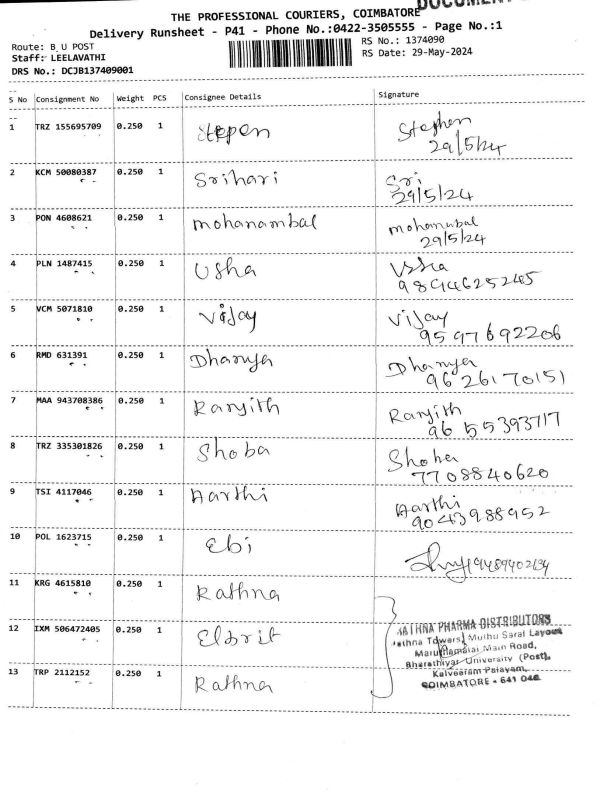 DOCUMENT
THE PROFESSIONAL COURIERS, COIMBATORE
Delivery Runsheet - P41 - Phone No.:0422-3505555 - Page No.:1
Route: B U POST
RS No.: 1374090
Staff: LEELAVATHI
RS Date: 29-May-2024
DRS No.: DCJB137409001
S No Consignment No Weight PCS Consignee Details Signature
1 TRZ 155695709 0.250 1 Stepen Stephen
29/5/24
2 KCM 50080387 0.250 1 Srihari Sri
29/5/24
3 PON 4608621 0.250 1 mohanambal mohanabal
29/5/24
4 PLN 1487415 0.250 1 Usha Usha
9894625245
5 VCM 5071810 0.250 1 Vijay Vijay
9597692206
6 RMD 631391 0.250 1 Dhanya Dhanya
9626170151
7 MAA 943708386 0.250 1 Ranjith Ranjith
9655393717
8 TRZ 335301826 0.250 1 Shoba Shoba
7708840620
9 TSI 4117046 0.250 1 Aarthi Aarthi
9043988952
10 POL 1623715 0.250 1 Ebi
11 KRG 4615810 0.250 1 Rathna
12 IXM 506472405 0.250 1 Elbrit
13 TRP 2112152 0.250 1 Rathna
RATHNA PHARMA DISTRIBUTORS
Rathna Towers, Muthu Saral Layout
Maruthamalai Main Road,
Bharathiyar University (Post),
Kalveeram Palayam,
COIMBATORE - 641 046